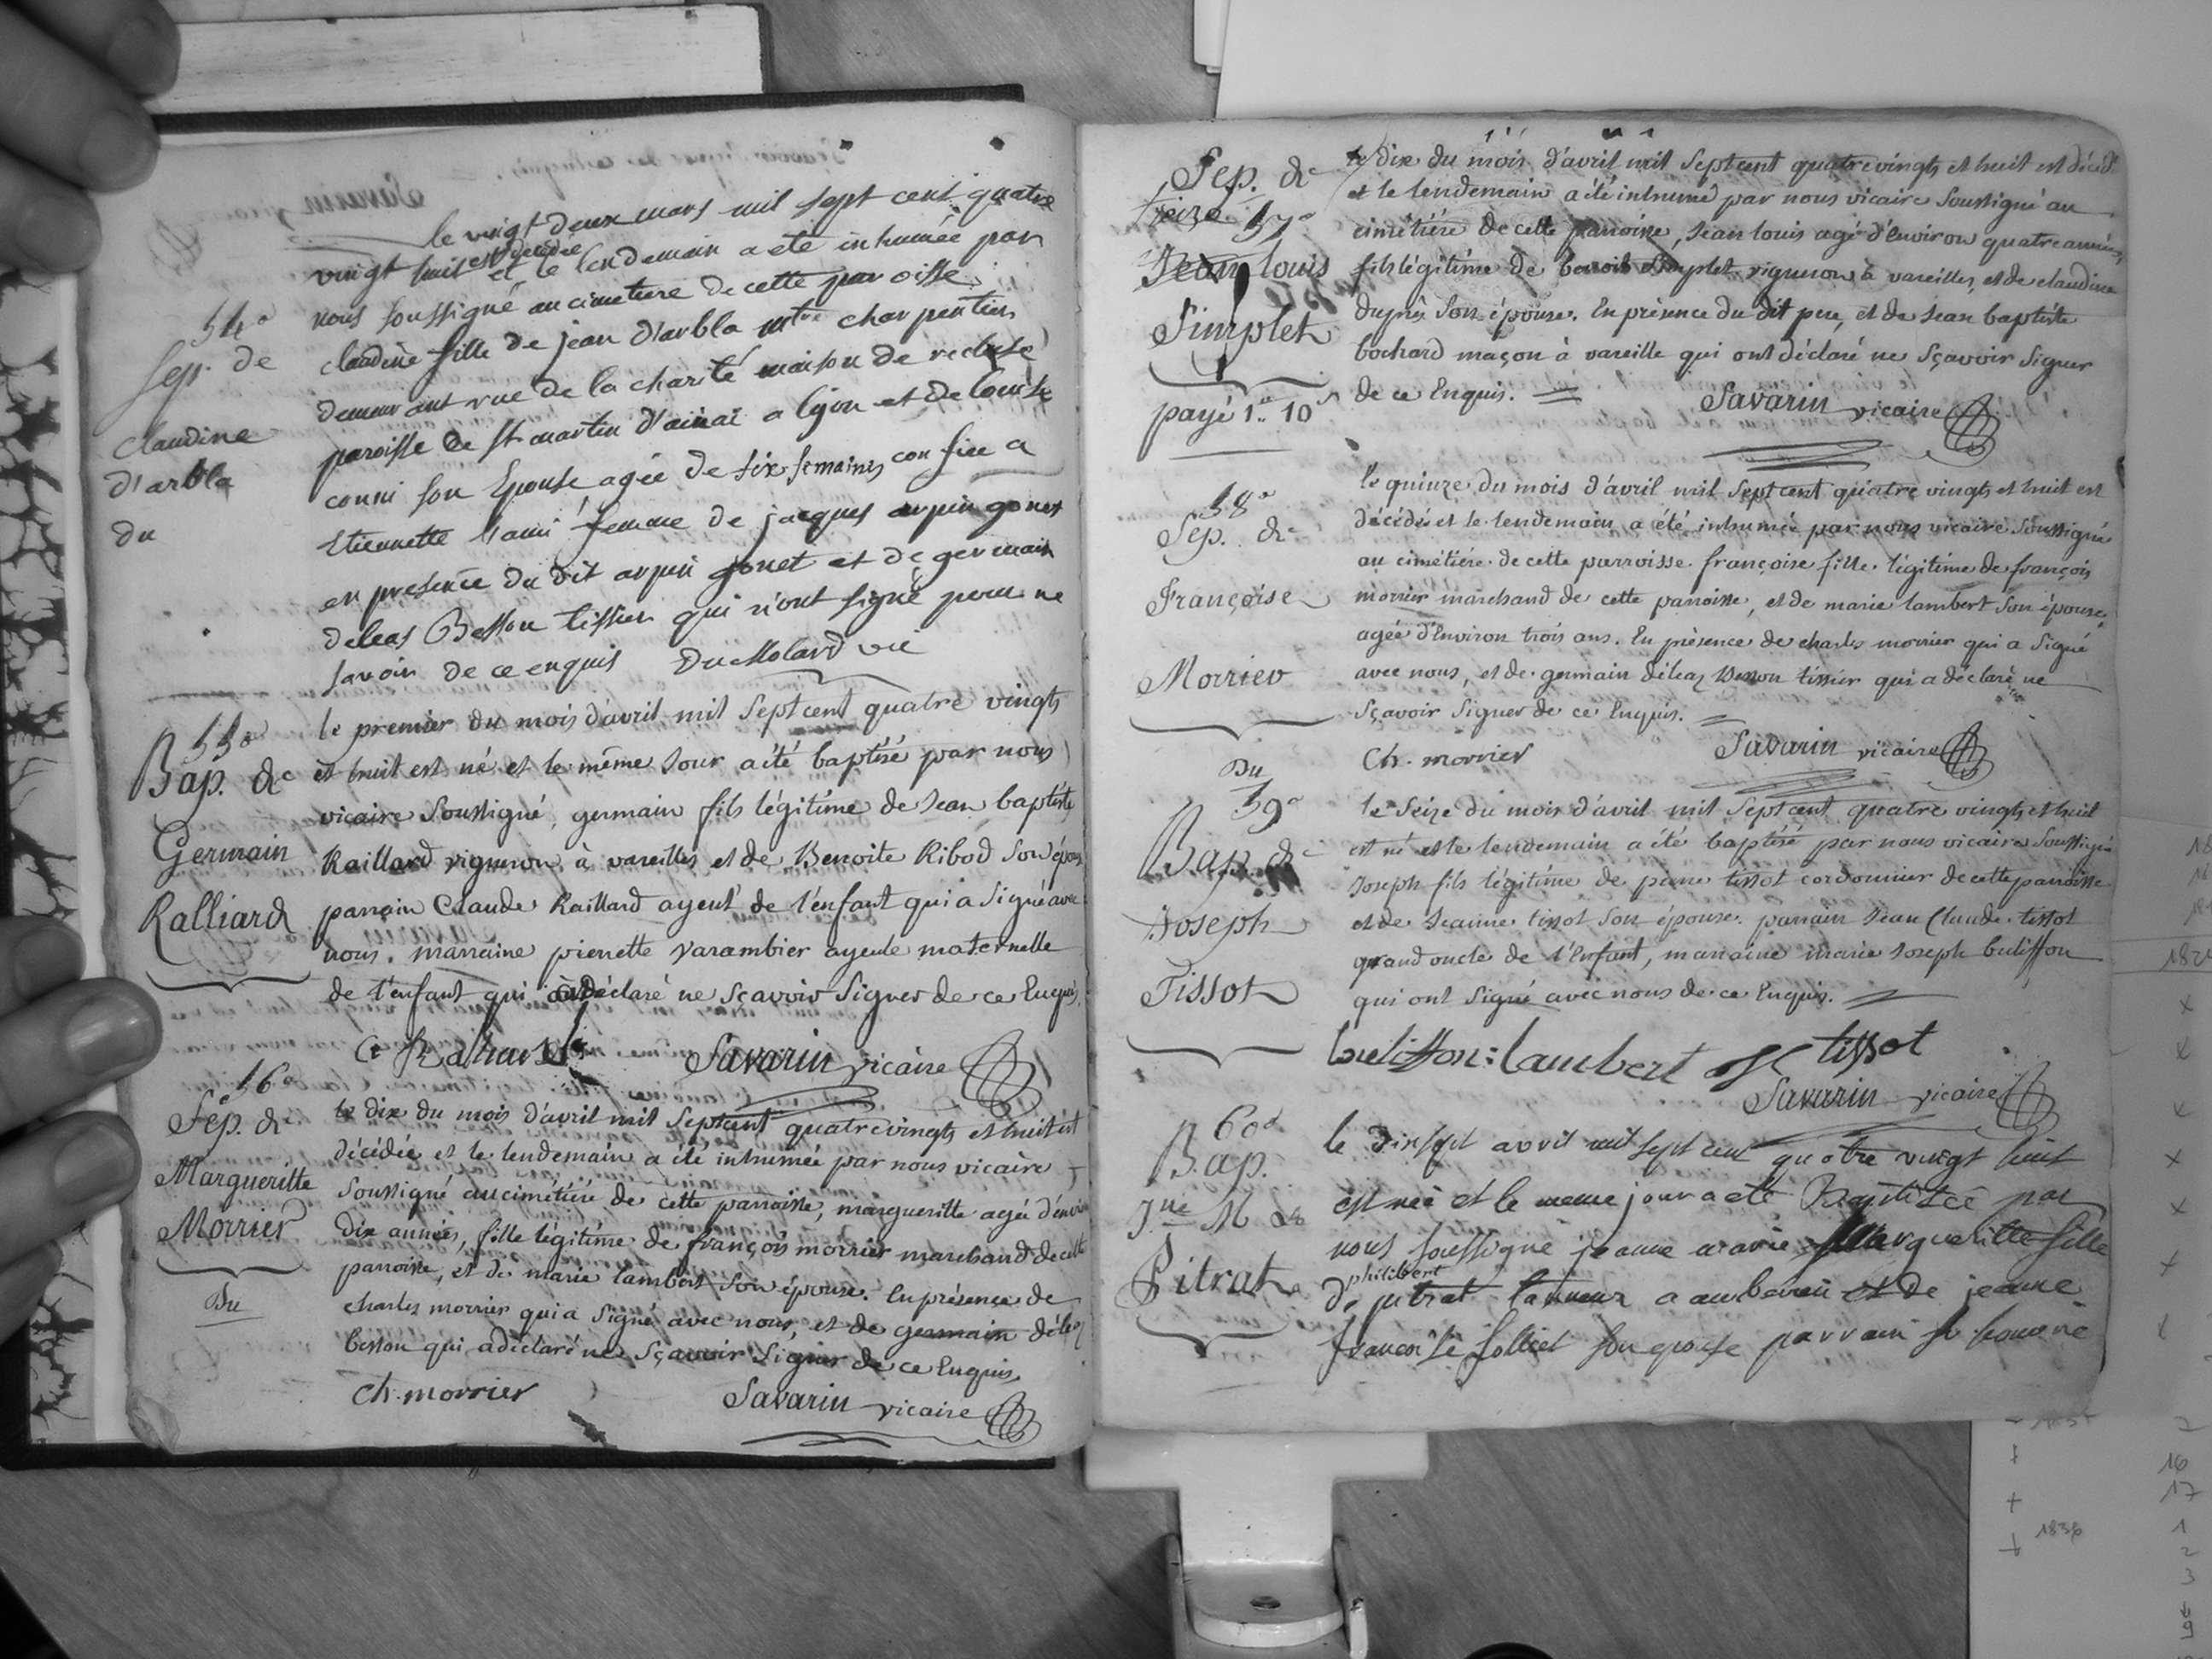 le vingt deux mars mil sept cent quatre
vingt huit est decedée et le lendemain a ete inhumée par
54e
nous soussigné au cimetiere de cette paroisse
Sep. de
claudine fille de jean d'arbla mtre charpentier
demeurant rue de la charité maison de recluse
Claudine
paroisse de st martin d'ainai a lyon et de louise
d'arbla
conni son Epouse agée de six semaines confiée a
du
Etiennette femme de jacques arpin gonet
en presence du dit arpin gonet et de germain
deleas Besson tissier qui n'ont signé pour ne
savoir de ce enquis DuMolard vic
55e
le premier du mois d'avril mil sept cent quatre vingts
Bap. de
et huit est né et le même jour a été baptisé par nous
vicaire soussigné, germain fils légitime de Jean baptiste
Germain
Raillard vigneron à vareilles et de Benoite Ribod son épouse
Ralliard
parrain Claude Raillard ayeul de l'enfant qui a signé avec
nous. marraine pierrette varambier ayeule maternelle
de l'enfant qui a déclaré ne sçavoir signer de ce Enquis.
Savarin vicaire
56e
le dix du mois d'avril mil sept cent quatre vingts et huit est
Sep. de
décédée et le lendemain a été inhumée par nous vicaire
Margueritte
soussigné au cimétière de cette parroisse, margueritte agée d'environ
Morrier
dix années, fille légitime de françois morrier marchand de cette
parroisse, et de marie lambert son épouse. En présence de
Du
charles morrier qui a signé avec nous, et de germain déleaz
besson qui a déclaré ne sçavoir signer de ce Enquis.
Ch. morrier Savarin vicaire
Sep. de
le dix du mois d'avril mil sept cent quatre vingts et huit est décédé
et le lendemain a été inhumé par nous vicaire soussigné au
57e
cimétière de cette parroisse, Jean louis agé d'environ quatre années,
Jean louis
fils légitime de benoit Simplet vigneron à vareilles, et de claudine
Simplet
dupuis son épouse. En présence du dit pere, et de Jean baptiste
bochard maçon à vareille qui ont déclaré ne sçavoir signer
payé 1.. 10s
de ce Enquis.
Savarin vicaire
58e
le quinze du mois d'avril mil sept cent quatre vingts et huit est
Sep. de
décédée et le lendemain a été inhumée par nous vicaire soussigné
au cimétière de cette parroisse françoise fille légitime de françois
Françoise
morrier marchand de cette parroisse, et de marie lambert son épouse,
agée d'environ trois ans. En présence de charles morrier qui a signé
Morrier
avec nous, et de germain déleaz Besson tissier qui a déclaré ne
sçavoir signer de ce Enquis.
Du
Ch. morrier Savarin vicaire
59e
le seize du mois d'avril mil sept cent quatre vingts et huit
Bap. de
est né et le lendemain a été baptisé par nous vicaire soussigné
Joseph fils légitime de pierre tissot cordonnier de cette parroisse
Joseph
et de Jeanne tissot son épouse. parrain Jean Claude tissot
grand oncle de l'Enfant, marraine marie Joseph buliffon
Tissot
qui ont signé avec nous de ce Enquis.
buliffon: lambert tissot
Savarin vicaire
60e
le dixsept avril mil sept cent quatre vingt huit
Bap.
est née et le meme jour a ete Baptisée par
Jne M de
nous soussigné jeanne marie Margueritte fille
Pitrat
de philibert pitrat tanneur a ambereu et de jeanne
francoise folliet son epouse parrain
1836
16
17
1
2
3